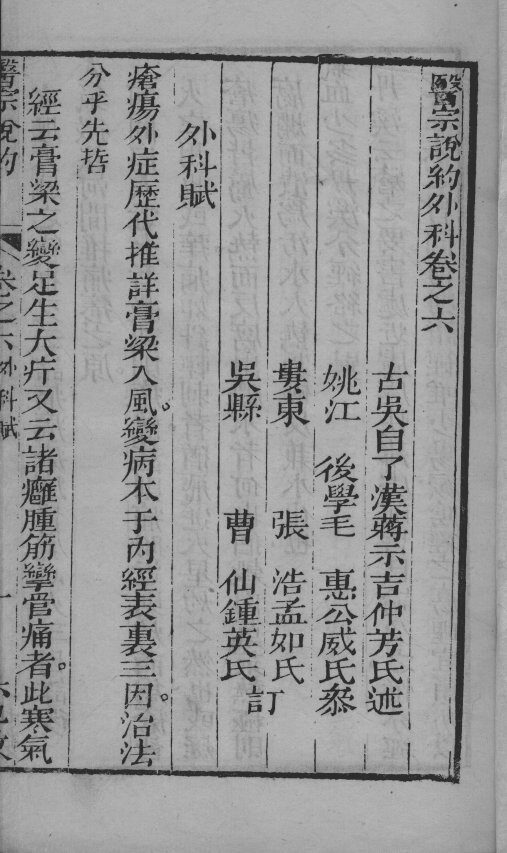 醫宗說約外科卷之六
古吳自了漢蔣示吉仲芳氏述
姚江　後學毛　惠公威氏叅
婁東　張　浩孟如氏
吳縣　曹　仙鍾英氏訂
外科賦
瘡瘍外症歷代推詳膏粱入風。變病本于內經表裏三因。治法
分乎先哲
經云膏粱之變足生大疔又云諸癰腫筋攣骨痛者。此寒氣
醫宗說約　卷之六外科賦　一